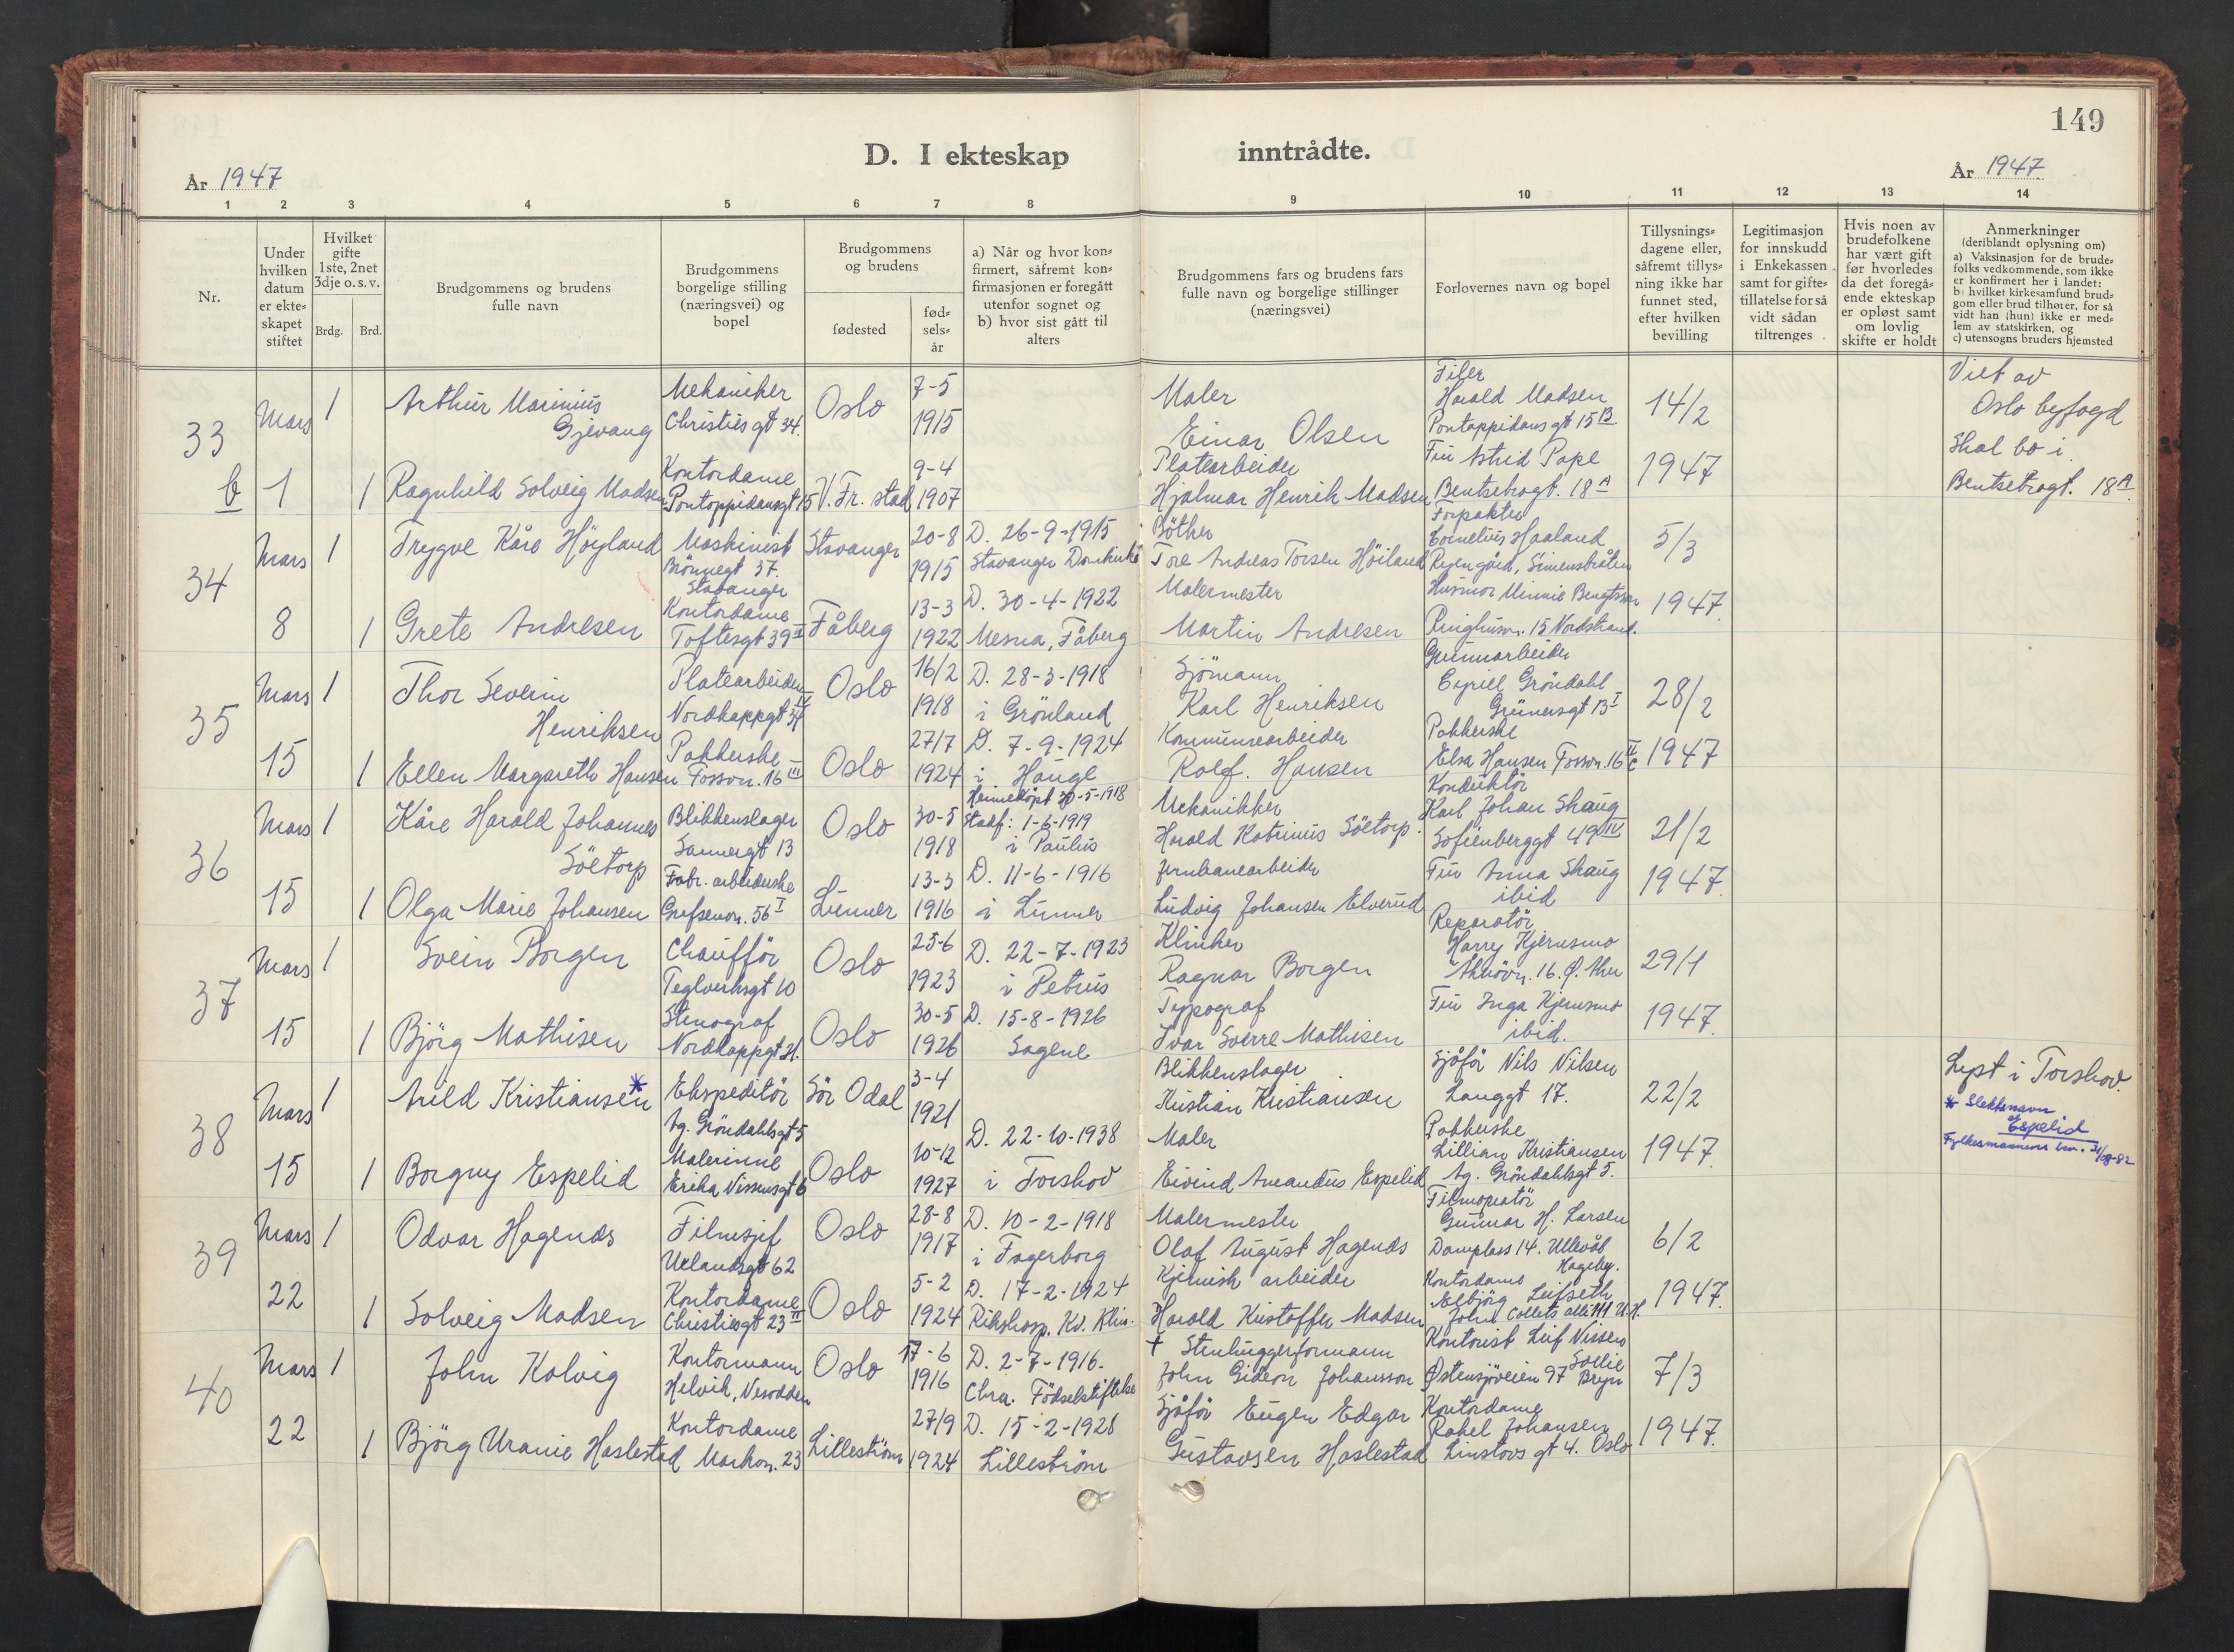 149
D. I ekteskap inntrådte.
År 1947
År 1947
1 2 3 4 5 6 7 8 9 10 11 12 13 14
Nr.
Under hvilken datum er ekte-skapet stiftet
Hvilket gifte 1ste, 2net 3dje o. s. v.
Brdg. Brd.
Brudgommens og brudens fulle navn
Brudgommens borgelige stilling (næringsvei) og bopel
Brudgommens og brudens
fødested
fød-sels-år
a) Når og hvor kon-firmert, såfremt kon-firmasjonen er foregått utenfor sognet og b) hvor sist gått til alters
Brudgommens fars og brudens fars fulle navn og borgelige stillinger (næringsvei)
Forlovernes navn og bopel
Tillysnings-dagene eller, såfremt tillys-ning ikke har funnet sted, efter hvilken bevilling
Legitimasjon for innskudd i Enkekassen samt for gifte-tillatelse for så vidt sådan tiltrenges
Hvis noen av brudefolkene har vært gift før hvorledes da det foregå-ende ekteskap er opløst samt om lovlig skifte er holdt
Anmerkninger (deriblandt oplysning om) a) Vaksinasjon for de brude-folks vedkommende, som ikke er konfirmert her i landet: b) hvilket kirkesamfund brud-gom eller brud tilhører, for så vidt han (hun) ikke er med-lem av statskirken, og c) utensogns bruders hjemsted
33 b
Mars 1
1
Arthur Marinius Gjevang
Mekaniker
Christies gt 34.
Oslo
7-5 1915
Maler
Einar Olsen
Filer
Harald Madsen
Pontoppidans gt 15 B
14/2 1947
Viet av
Oslo byfogd
Skal bo i
Bentsebrogt. 18 A
1
Ragnhild Solveig Madsen
Kontordame
Pontoppidansgt 15
V. Fr. stad
9-4 1907
Platearbeider
Hjalmar Henrik Madsen
Fru Astrid Pape
Bentsebrogt. 18 A
34
Mars 8
1
Trygve Kåre Höyland
Maskinist
Brönnegt 37.
Stavanger
Stavanger
20-8 1915
D. 26-9-1915
Stavanger Domkirke
Böther
Tore Andreas Torsen Höiland
Forpakter
Cornelius Haaland
Ryengård, Simensbråten
5/3 1947
1
Grete Andresen
Kontordame
Toftesgt 39 I
Fåberg
13-3 1922
D. 30-4-1922
Mesna, Fåberg
Malermester
Martin Andresen
Husmor Minnie Bengtsson
Ringhusv. 15 Nordstrand.
35
Mars 15
1
Thor Severin Henriksen
Platearbeider
Nordkappgt 34 IV
Oslo
16/2 1918
D. 28-3-1918
i Grönland
Sjömann
Karl Henriksen
Gummiarbeider
Eyriell Gröndahl
Grünersgt 13 I
28/2 1947
1
Ellen Margareth Hansen
Pakkerske
Fossvn. 16 III
Oslo
27/7 1924
D. 7-9-1924
i Hauge
Kommunearbeider
Rolf. Hansen
Pakkerske
Elsa Hansen Fossvn. 16 c
36
Mars 15
1
Kåre Harald Johannes Söetorp
Blikkenslager
Sannergt 13
Oslo
30-5 1918
Heimedöpt 30-5-1918
Stadf: 1-6-1919
i Paulus
Mekanikker
Harald Katrinus Söetorp.
Konduktör
Karl Johan Skaug
Sofienberggt 49 IV
21/2 1947
1
Olga Marie Johansen
Fabr. arbeiderske
Grefsenvn. 56 I
Lunner
13-3 1916
D. 11-6-1916
i Lunner
Jernbanearbeider
Ludvig Johansen Elverud
Fru Anna Skaug
ibid
37
Mars 15
1
Svein Borgen
Chauffför
Teglverksgt 10
Oslo
25-6 1923
D. 22-7-1923
i Petrus
Klinker
Ragnar Borgen
Reparatör
Harry Kjernsmo
Akerövn. 16. Ø. Aker
29/1 1947.
1
Björg Mathisen
Stenograf
Nordkappgt 21.
Oslo
30-5 1926
D. 15-8-1926
Sagene
Typograf
Ivar Sverre Mathisen
Fru Inga Kjernsmo
ibid.
38
Mars 15
1
Arild Kristiansen *
Ekspeditör
Ag. Gröndahlsgt 5
Sör Odal
3-4 1921
Blikkenslager
Kristian Kristiansen
Sjåför Nils Nilsen
Langgt 17.
22/2 1947.
Lyst i Torshov.
* Slektsnavn
Espelid
Fylkesmannens bev. 31/08-82
1
Borgny Espelid
Malerinne
Erika Nissensgt 6
Oslo
10-12 1927
D. 22-10-1938
i Torshov
Maler
Eivind Amandus Espelid
Pakkerske
Lillian Kristiansen
Ag. Gröndahlsgt 5.
39
Mars 22
1
Odvar Hagenæs
Filmsjef
Uelandsgt 62
Oslo
28-8 1917
D. 10-2-1918
i Fagerborg
Malermester
Olaf August Hagenæs
Filmoperatör
Gunnar H. Larsen
Damplass 14. Ullevål Hageby.
6/2 1947.
1
Solveig Madsen
Kontordame
Christiesgt 23 II
Oslo
5-2 1924
D. 17-2-1924
Rikshosp. Kv. Klin.
Kjemisk arbeider
Harald Kristoffer Madsen
Kontordame
Elbjörg Leifseth
John Collets allé 111 U.H.
40
Mars 22
1
John Kolvig
Kontormann
Helvik, Nesodden
Oslo
17-6 1916
D. 2-7-1916.
Chra. Födselstiftelse
+ Stenhuggerformann
John Gideon Johansson
Kontorist Leif Nissen
Østensjöveien 97 Bryn
7/3 1947.
1
Björg Uranie Haslestad
Kontordame
Markvn. 23
Lilleström
27/9 1924
D. 15-2-1928
Lilleström
Sjåför Eugen Edgar
Gustavsen Haslestad
Kontordame
Rakel Johansen
Linstovs gt 4. Oslo